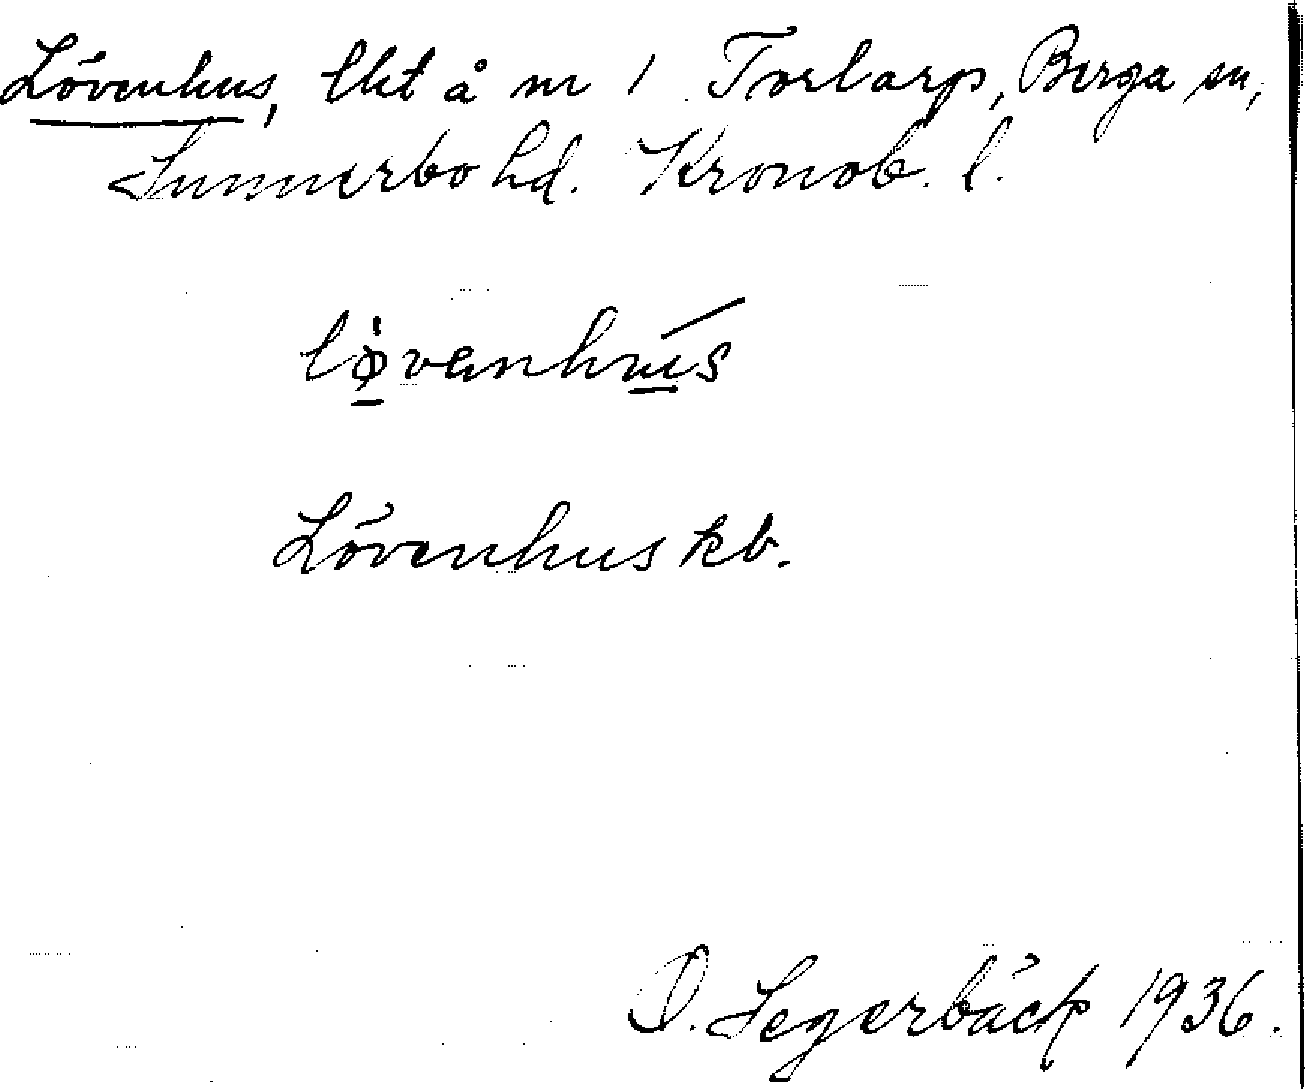 Lövenhus, lht å nr 1 Torlarp, Berga sn,
Sunnerbo hd. Kronob. l.
lø̀venhús
Lövenhus kb.
O. Segerbäck 1936.